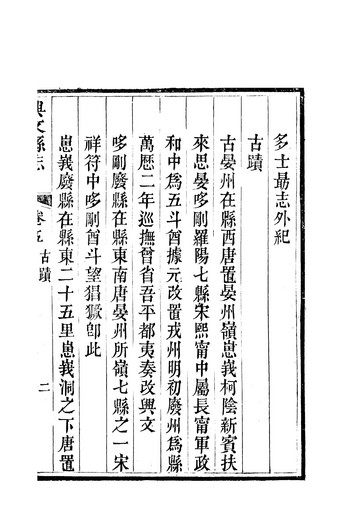 多士最志外紀
古蹟
古晏州在縣西唐置晏州嶺思峩柯陰新賓扶
來思晏哆剛羅陽七縣宋熙甯中屬長甯軍政
和中爲五斗酋據元改置戎州明初廢州爲縣
萬歷二年巡撫曾省吾平都夷奏改興文
哆剛廢縣在縣東南唐晏州所嶺七縣之一宋
祥符中哆剛酋斗望猖獗卽此
思峩廢縣在縣東二十五里思峩洞之下唐置
興文縣志
卷五
古蹟
二